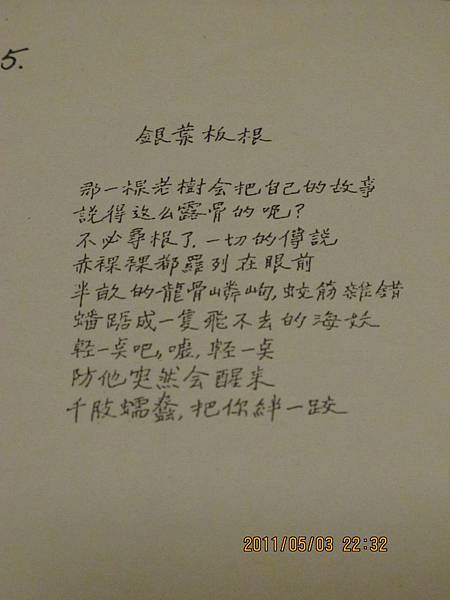 5.
銀葉板根
那一棵老樹会把自己的故事
說得这么露骨的呢？
不必尋根了．一切的傳說
赤裸裸都羅列在眼前
半畝的龍骨嶙峋，蛟筋雜錯
蟠踞成一隻飛不去的海妖
輕一点吧，噓，輕一点
防他突然会醒来
千肢蠕蠢，把你絆一跤
2011/05/03 22:32